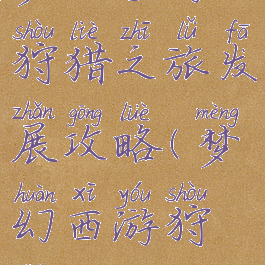 shòu liè zhī lǚ fā
狩猎之旅发
zhǎn gōng lüè mèng
展攻略(梦
huàn xī yóu shòu
幻西游狩